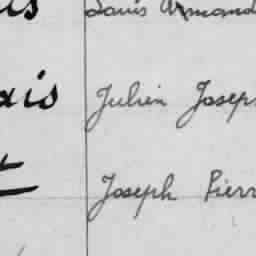 is Louis Armand
ais Julien Josep
Joseph Pierr